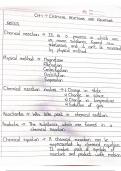 Ch-1 Chemical Reactions and Equations
Chemical reaction → It is a process in which one or more substances
substances and it can't be reversed
by physical method.
Physical method → Magnetism
Filtration
Centrifugation
Crystallisation
Evaporation
Chemical reaction involves → Change in state
Change in colour
Change in temperature
Evolution of gas
Reactants → Who take part in chemical reaction.
Products → The substances which are formed in a
chemical reaction.
Chemical Equation → A chemical reaction can be
represented by chemical equation.
It involves uses of symbols of
reactant and product with